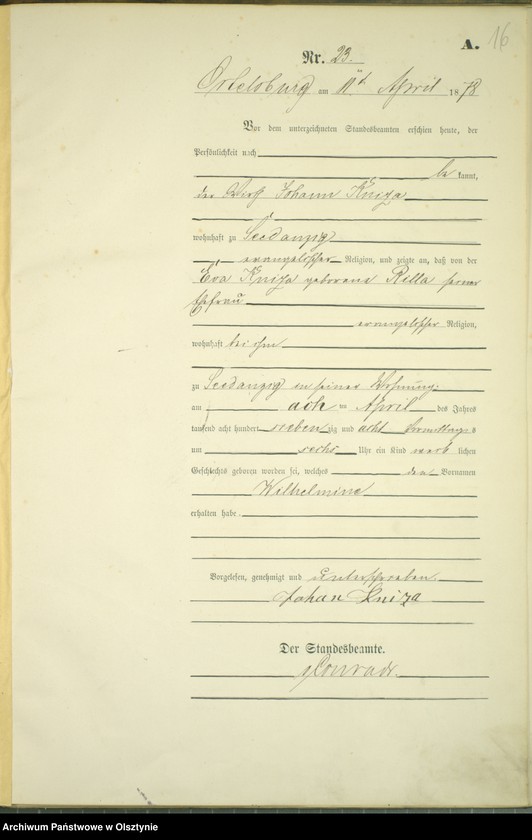 A. 16
Nr. 23.
Ortelsburg am 11ten April 1878
Vor dem unterzeichneten Standesbeamten erschien heute, der
Persönlichkeit nach
be kannt,
der Wirth Johann Kniza
wohnhaft zu Seedanzig
evangelischer Religion, und zeigte an, daß von der
Eva Kniza geborene Rella seiner
Ehefrau
evangelischer Religion,
wohnhaft bei ihm
zu Seedanzig in seiner Wohnung
am acht ten April des Jahres
tausend acht hundert siebenzig und acht Vormittags
um sechs Uhr ein Kind weib lichen
Geschlechts geboren worden sei, welches den Vornamen
Wilhelmine
erhalten habe
Vorgelesen, genehmigt und unterschrieben
Johan Kniza
Der Standesbeamte.
Conrad.
Archiwum Państwowe w Olsztynie